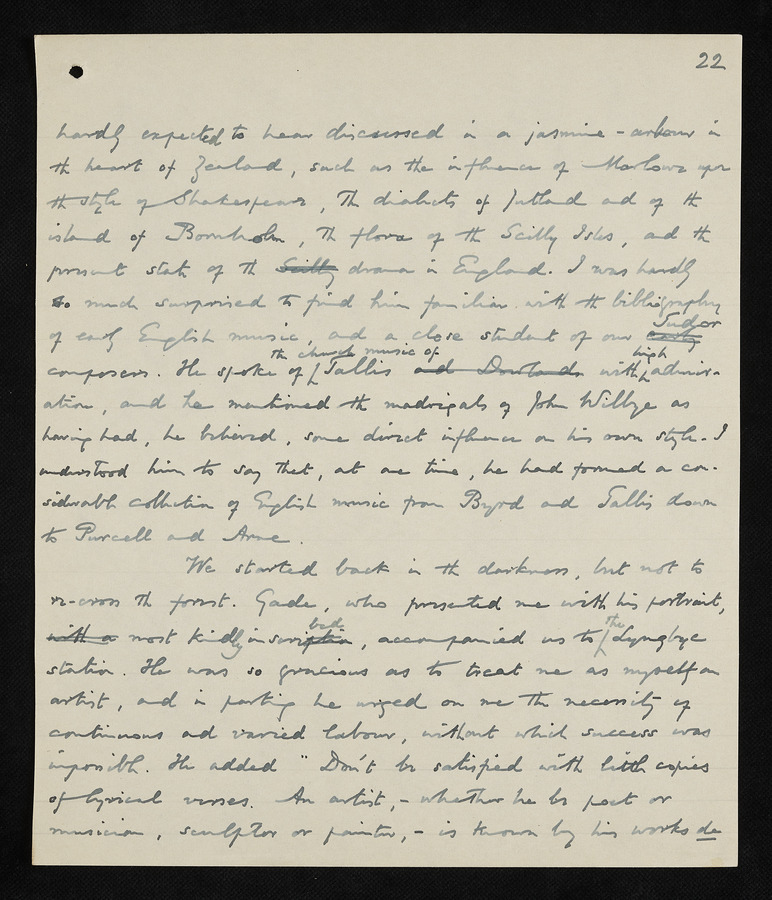 22
hardly expected to hear discussed in a jasmine-arbour in
the heart of Zealand, such as the influence of Marlowe upon
the style of Shakespeare, the dialects of Jutland and of the
island of Bornholm, the flora of the Scilly Isles, and the
present state of the Scilly drama in England. I was hardly
so much surprised to find him familiar with the bibliography
of early English music, and a close student of our early Tudor
composers. He spoke of the church music of Tallis and Dowlands with high admir-
ation, and he mentioned the madrigals of John Wilbye as
having had, he believed, some direct influence on his own style. I
understood him to say that, at one time, he had formed a con-
siderable collection of English music from Byrd and Tallis down
to Purcell and Arne.
We started back in the darkness, but not to
re-cross the forest. Gade, who presented me with his portrait,
with a most kindly inscribed, accompanied us to the Lyngbye
station. He was so gracious as to treat me as myself an
artist, and in parting he urged on me the necessity of
continuous and varied labour, without which success was
impossible. He added "Don't be satisfied with little copies
of lyrical verses. An artist, - whether he be poet or
musician, sculptor or painter, - is known by his works de